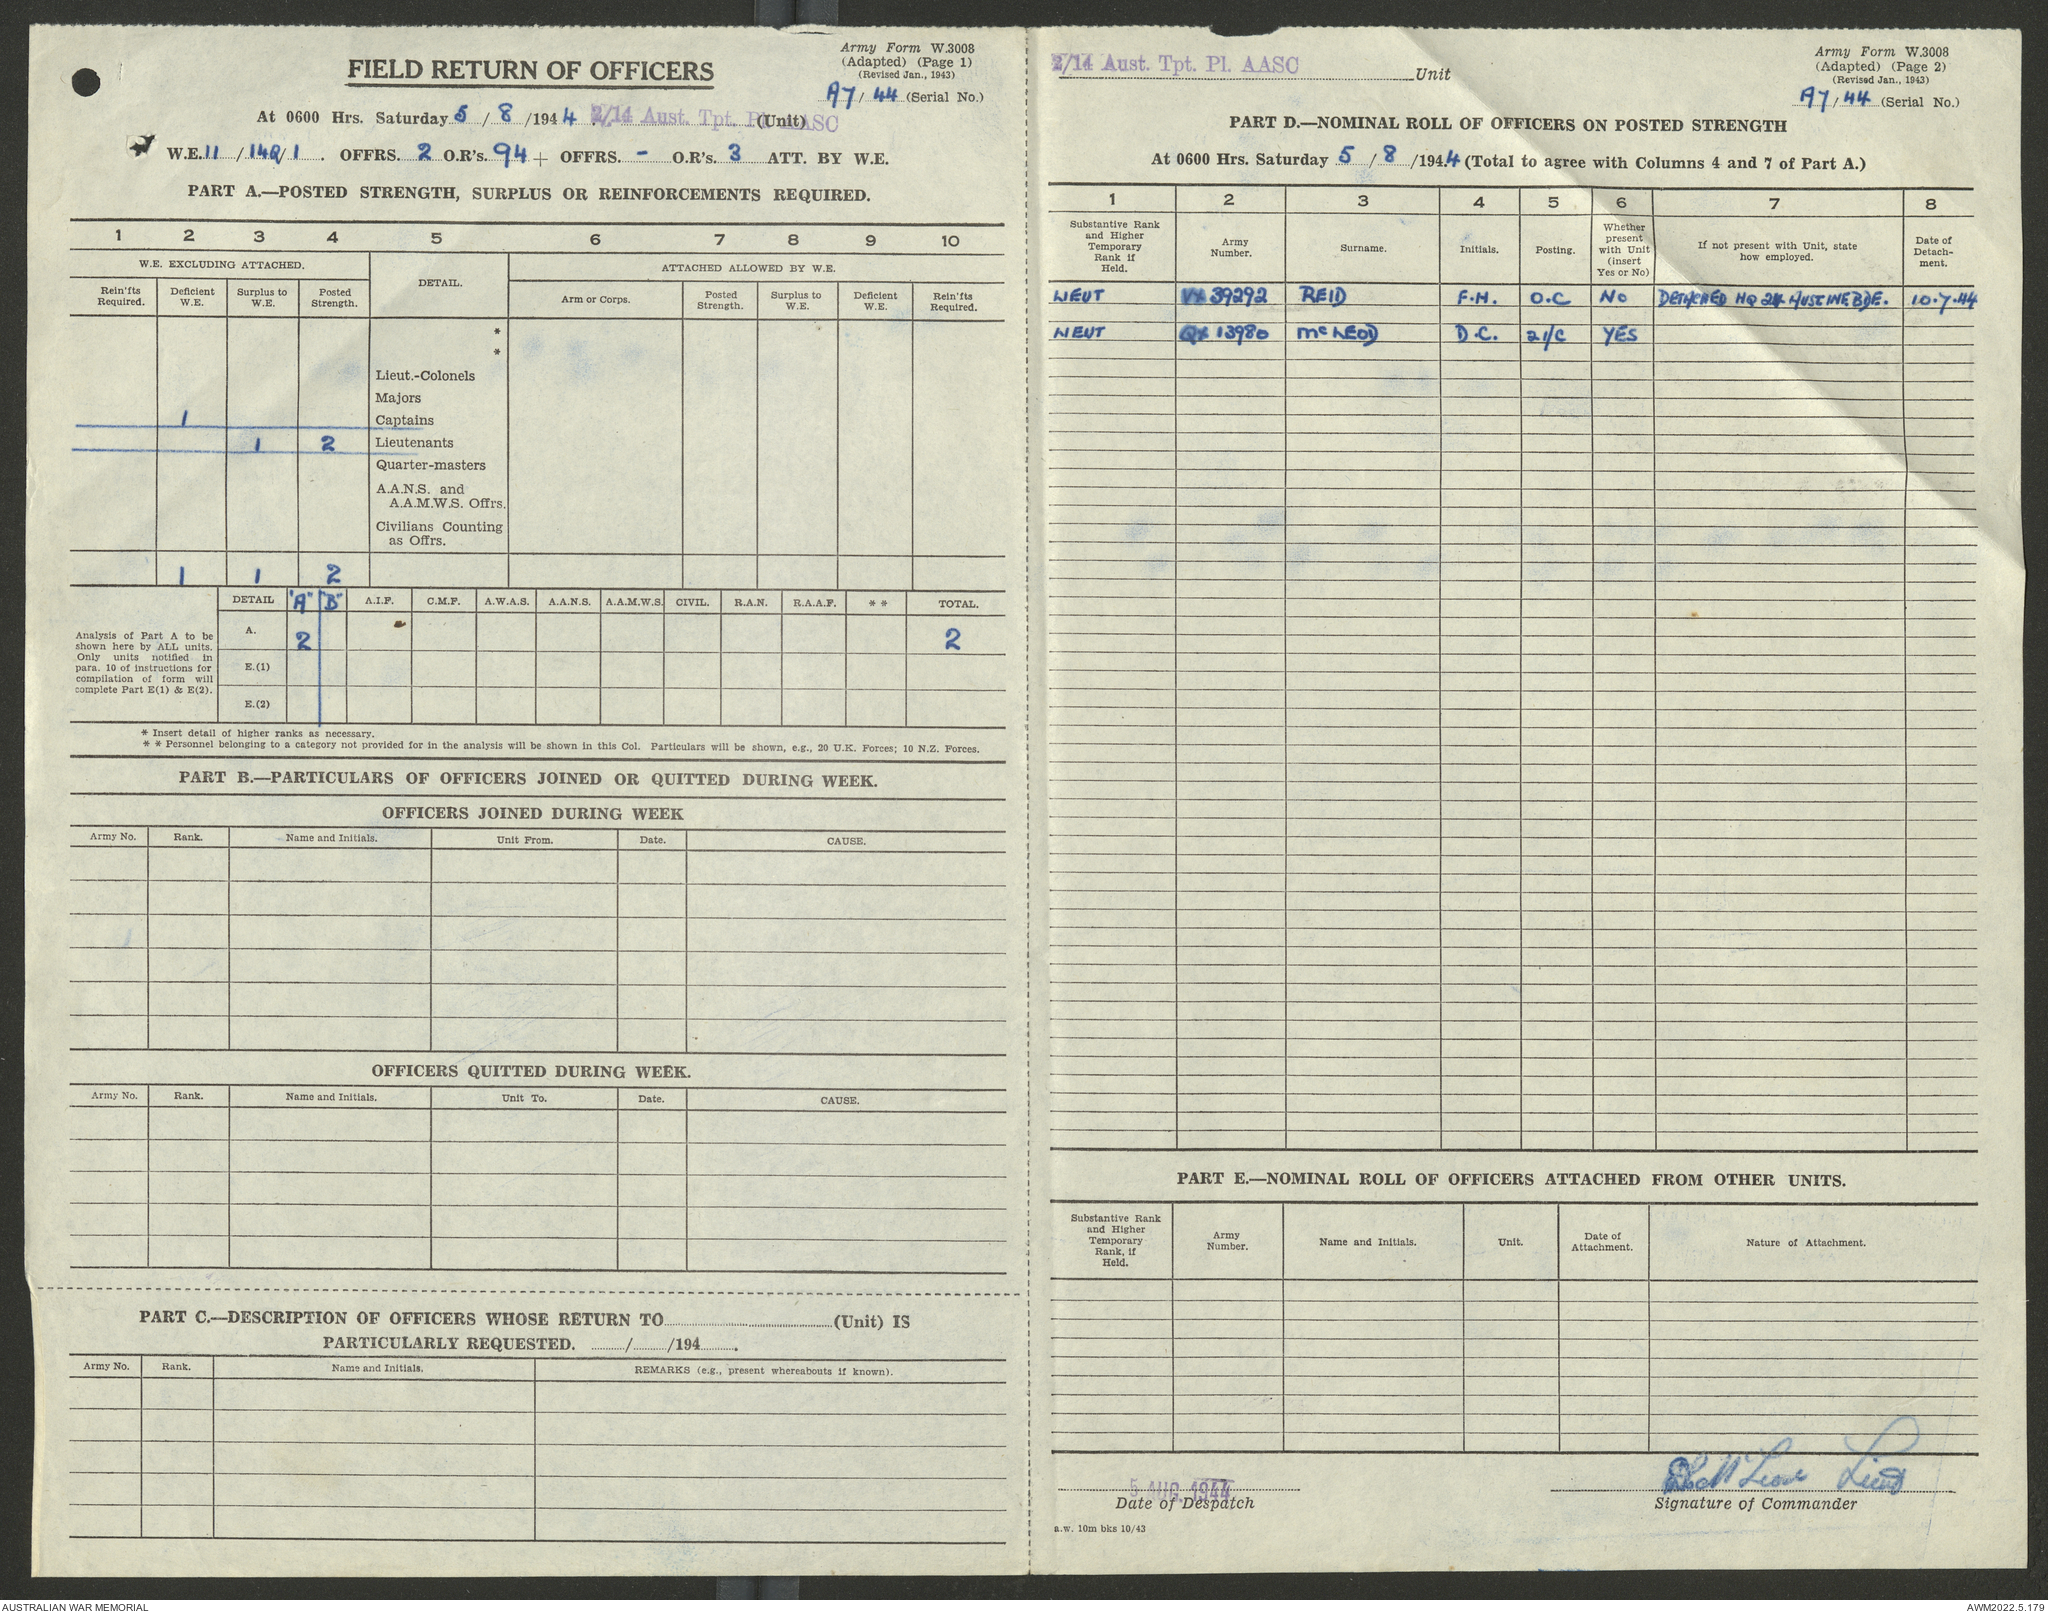 Army Form W.3008
(Adapted) (Page 1)
(Revised Jan., 1943)
A7/44 (Serial No.)
FIELD RETURN OF OFFICERS
At 0600 Hrs. Saturday 5/8/1944. 2/14 Aust. Tpt. Pl. AASC (Unit)
W.E. 11/14Q/1. OFFRS. 2 O.R's. 94 + OFFRS. - O.R's. 3 ATT. BY W.E.
PART A.—POSTED STRENGTH, SURPLUS OR REINFORCEMENTS REQUIRED.
1 2 3 4 5 6 7 8 9 10
W.E. EXCLUDING ATTACHED. DETAIL. ATTACHED ALLOWED BY W.E.
Rein'fts Required. Deficient W.E. Surplus to W.E. Posted Strength. Arm or Corps. Posted Strength. Surplus to W.E. Deficient W.E. Rein'fts Required.
*
*
Lieut.-Colonels
Majors
1 Captains
1 2 Lieutenants
Quarter-masters
A.A.N.S. and
A.A.M.W.S. Offrs.
Civilians Counting
as Offrs.
1 1 2
DETAIL "A" "B" A.I.F. C.M.F. A.W.A.S. A.A.N.S. A.A.M.W.S. CIVIL. R.A.N. R.A.A.F. * * TOTAL.
Analysis of Part A to be
shown here by ALL units.
Only units notified in
para. 10 of instructions for
compilation of form will
complete Part E(1) & E(2).
A. 2 2
E.(1)
E.(2)
* Insert detail of higher ranks as necessary.
* * Personnel belonging to a category not provided for in the analysis will be shown in this Col. Particulars will be shown, e.g., 20 U.K. Forces; 10 N.Z. Forces.
PART B.—PARTICULARS OF OFFICERS JOINED OR QUITTED DURING WEEK.
OFFICERS JOINED DURING WEEK
Army No. Rank. Name and Initials. Unit From. Date. CAUSE.
OFFICERS QUITTED DURING WEEK.
Army No. Rank. Name and Initials. Unit To. Date. CAUSE.
PART C.—DESCRIPTION OF OFFICERS WHOSE RETURN TO (Unit) IS
PARTICULARLY REQUESTED. / /194 .
Army No. Rank. Name and Initials. REMARKS (e.g., present whereabouts if known).
2/14 Aust. Tpt. Pl. AASC Unit
Army Form W.3008
(Adapted) (Page 2)
(Revised Jan., 1943)
A7/44 (Serial No.)
PART D.—NOMINAL ROLL OF OFFICERS ON POSTED STRENGTH
At 0600 Hrs. Saturday 5/8/1944 (Total to agree with Columns 4 and 7 of Part A.)
1 2 3 4 5 6 7 8
Substantive Rank and Higher Temporary Rank if Held. Army Number. Surname. Initials. Posting. Whether present with Unit (insert Yes or No) If not present with Unit, state how employed. Date of Detach-ment.
LIEUT VX 39292 REID F.H. O.C NO DETACHED HQ 24 AUST INF BDE. 10.7.44
LIEUT QX 13980 McLEOD D.C. 2I/C YES
PART E.—NOMINAL ROLL OF OFFICERS ATTACHED FROM OTHER UNITS.
Substantive Rank and Higher Temporary Rank, if Held. Army Number. Name and Initials. Unit. Date of Attachment. Nature of Attachment.
5 AUG 1944 Lieut
Date of Despatch Signature of Commander
a.w. 10m bks 10/43
AUSTRALIAN WAR MEMORIAL AWM2022.5.179